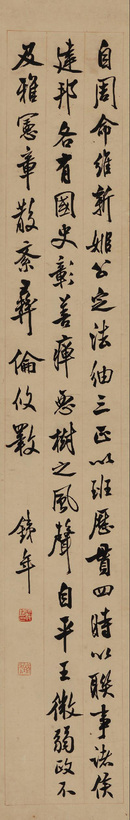 自周命維新姬公定法紬三正以班歷貫四時以聯事諸侯
建邦各有國史彰善癉惡樹之風聲自平王微弱政不
及雅憲章散紊彝倫攸斁 錢年